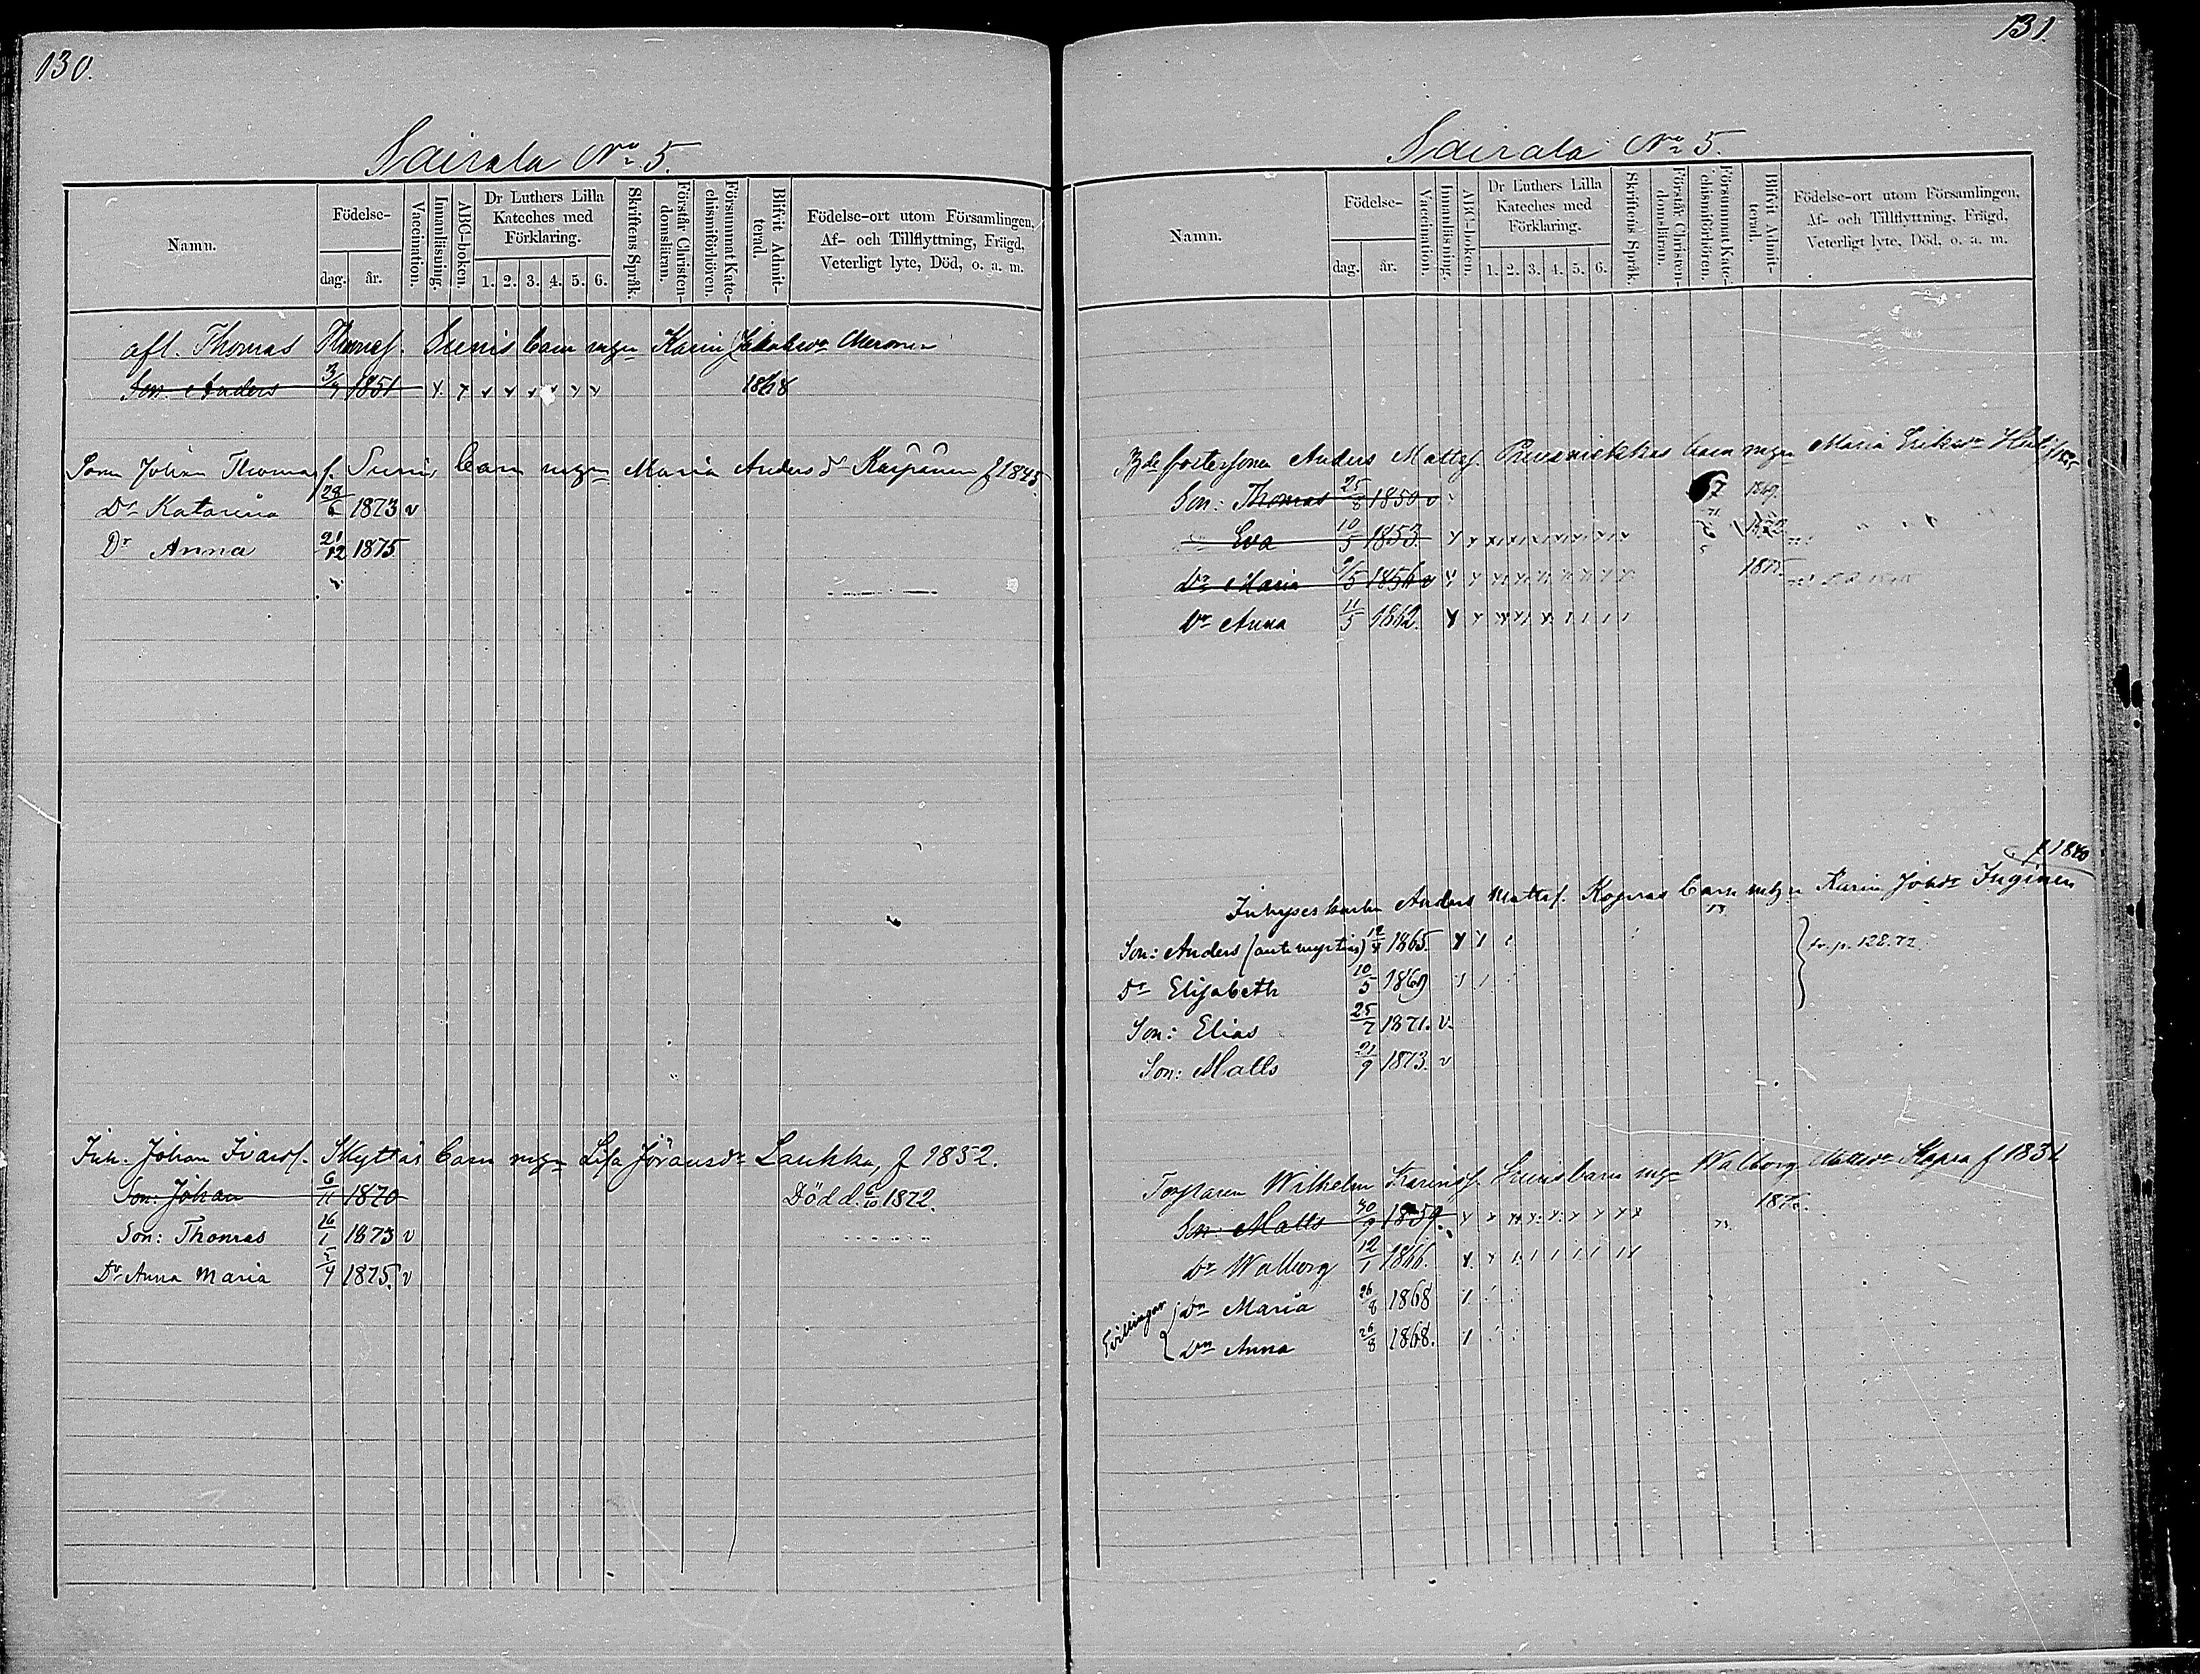 130.
Sairala No 5.
Namn.
Födelse-
dag.
år.
Vaccination.
Innanläsning.
ABC-boken.
Dr Luthers Lilla
Kateches med
Förklaring.
1. 2. 3. 4. 5. 6.
Skriftens Språk.
Förstår Christen-
domsläran.
Försummat Kate-
chismiförhören.
Blifvit Admit-
terad.
Födelse-ort utom Församlingen,
Af- och Tillflyttning, Frägd,
Veterligt lyte, Död, o. a. m.
afl. Thomas Thomass. Sunis barn m Karin Jakobsdr Meronen
Son Anders 3/7 1851 1868
Sonen Johan Thomass. Sunis barn m Maria Andersdr Karpinen f 1845
Dr Katarina 28/6 1873 v
Dr Anna 21/12 1875
Inh. Johan Ivarss. Skyttäs barn m Lisa Jöransdr Laukka, f 1852.
Son: Johan 6/11 1870 Död d. 6/10 1872.
Son: Thomas 16/1 1873 v
Dr Anna Maria 5/4 1875. v
131.
Sairala No 5.
Namn.
Födelse-
dag.
år.
Vaccination.
Innanläsning.
ABC-boken.
Dr Luthers Lilla
Kateches med
Förklaring.
1. 2. 3. 4. 5. 6.
Skriftens Språk.
Förstår Christen-
domsläran.
Försummat Kate-
chismiförhören.
Blifvit Admit-
terad.
Födelse-ort utom Församlingen,
Af- och Tillflyttning, Frägd,
Veterligt lyte, Död, o. a. m.
fostersonen Anders Matts. barn m Maria Eriksdr
Son: Thomas 25/8 1850 v 1869.
Eva 10/5 1853.
Dr Maria 9/5 1856 v 1875.
Dr Anna 11/5 1862.
f 1840
Inhyses karlen Anders Matts. Kopras barn m Karin Johsdr Inginen
Son: Anders 12/4 1865. fr. p. 128. 72
Dr Elisabeth 10/5 1869
Son: Elias 25/7 1871. v.
Son: Matts 21/9 1873. v
Torparen Wilhelm Karinss. Sunis barn m Walborg Mattsdr Kopra f 1831
Son: Matts 30/9 1859. 1876.
Dr Walborg 12/1 1866.
Tvillingar
Dn Maria 26/8 1868
Dn Anna 26/8 1868.